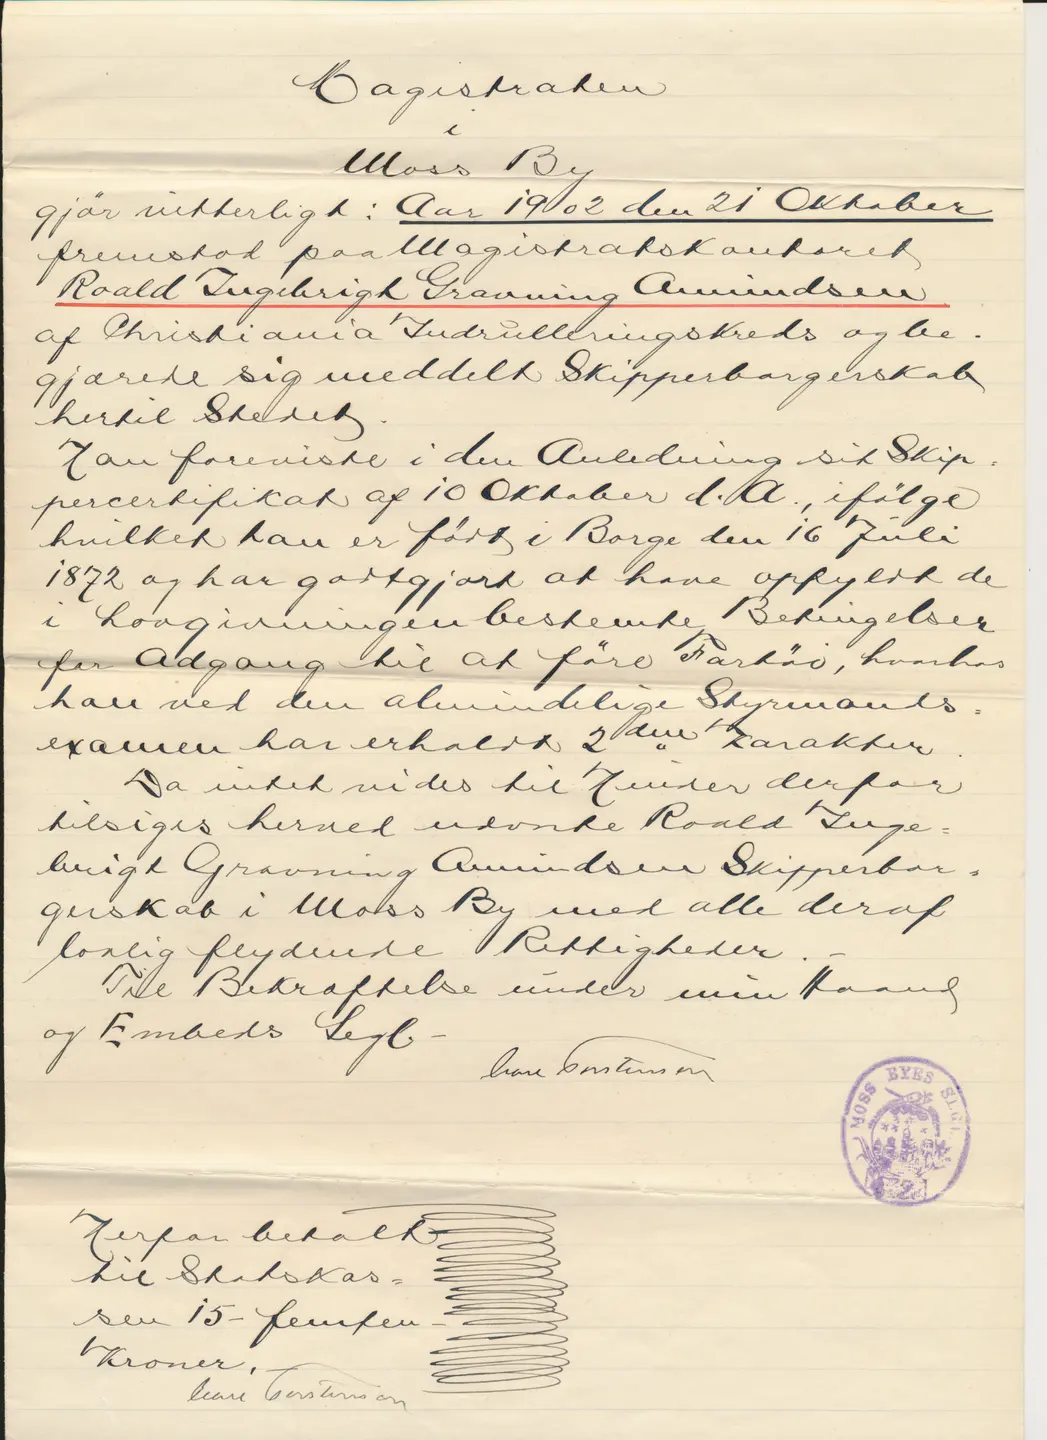 Magistraten
i
Moss By
gjör vitterligt: Aar 1902 den 21 Oktober
fremstod paa Magistratskontoret
Roald Ingebrigt Gravning Amundsen
af Christiania Indrulleringskreds og be-
gjærede sig meddelt Skipperborgerskab
hertil Stedet.
Han foreviste i den Anledning sit Skip-
percertifikat af 10 Oktober d. A., ifølge
hvilket han er födt i Borge den 16 Juli
1872 og har godtgjort at have opfyldt de
i Lovgivningen bestemte Betingelser
for Adgang til at före Fartöi, hvorhos
han ved den almindelige Styrmands-
examen har erholdt 2den Karakter.
Da intet vides til Hinder derfor
tilsiges herved udvnte Roald Inge-
brigt Gravning Amundsen Skipperbor-
gerskab i Moss By med alle deraf
lovlig flydende Rettigheder. -
Til Bekræftelse under min Haand
og Embeds Segl -
MOSS BYES SEGL
Herfor betalt
til Statskas-
sen 15 - femten -
Kroner. -